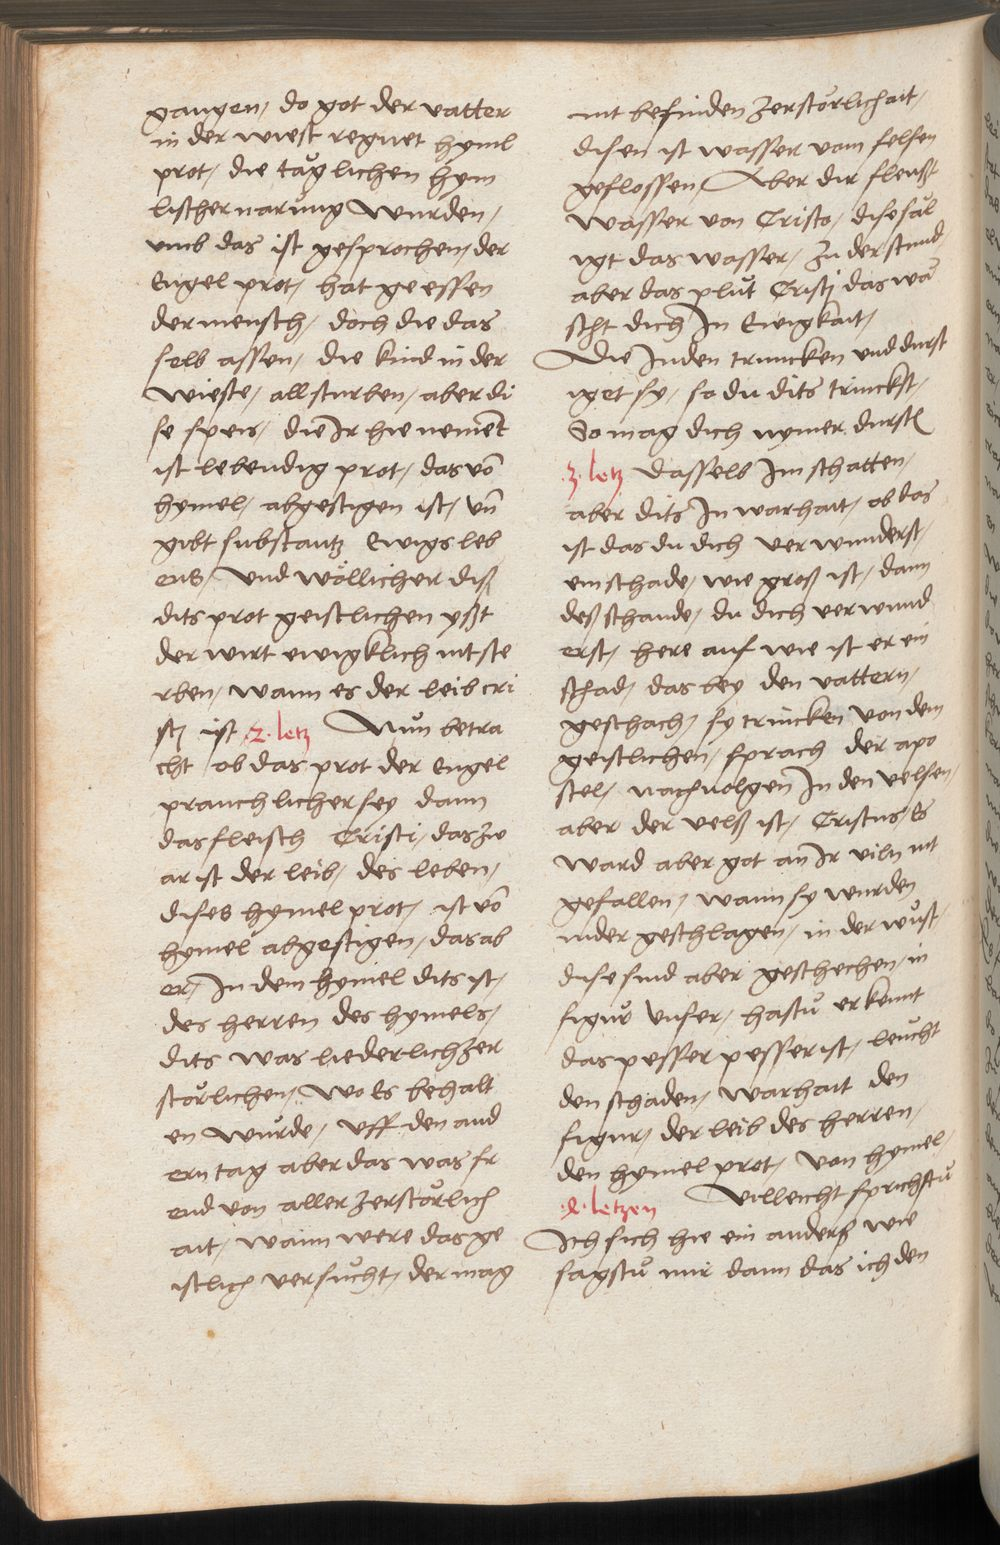 gangen / do got der vatter
in der wiest regnet hyml
prot / die täglichen hym
lischer narung wurden /
umb das ist gesprochen / der
Engel prot / hat geessen
der mensch / doch die das
selb assen / die kind in der
wieste / all sturben / aber di
se speis / die Ir hie nement
ist lebendig prot / das vō
hymel / abgestigen ist / vn̄
gibt substantz Ewigs leb
ens / Und wöllicher diß
dits prot geistlichen yßt
der wirt ewigklich nit ste
rben / wann es der leib cri
stj ist .2. letz Nun betra
cht ob das prot der Engel
prauchlicher sey dann
das fleisch Cristi / das zw
ar ist der leib / des leben /
dises hymel prot / ist vō
hymel abgestigen / das ab
er / In dem hymel dits ist /
des herren des hymels /
dits was liederlich zer
störlichen / wo Es behalt
en wurde / Uff den and
ern tag aber das was fr
emd von aller zerstörlich
ait / wann were das ge
istlich versucht / der mag
nit befinden zerstörlichait /
disen ist wasser vom felsen
geflossen / Aber dir fleust
wasser von Cristo / dise säl
igt das wasser / zu der stund /
aber das plut Cristj das wä
scht dich In Ewigkait /
Die Juden truncken und durst
iget sy / so du dits trinckst /
So mag dich nymer dursten
.3. letz dasselb Im schatten /
aber dits In warhait / ob das
ist das du dich verwunderst /
ein schade / wie groß ist / dann
deß schande / du dich verwund
erst / here auf wie ist er ein
schad / das bey den vattern /
geschach / sy trincken von dem
geistlichen / sprach der apo
stel / nachvolgen In den velsen /
aber der velß ist / Cristus / Es
ward aber got an Ir viln nit
gefallen / wann sy wurden
nider geschlagen / in der wust /
dise sind aber geschechen / in
figur vnser / hastu erkennt
das pesser pesser ist / leucht
den schaden / warhait den
figur / der leib des herren /
den hymel prot / von hymel /
.4. letzen Villeicht sprichstu
Ich sich hie ein anders wie
sagstu mir dann das ich den